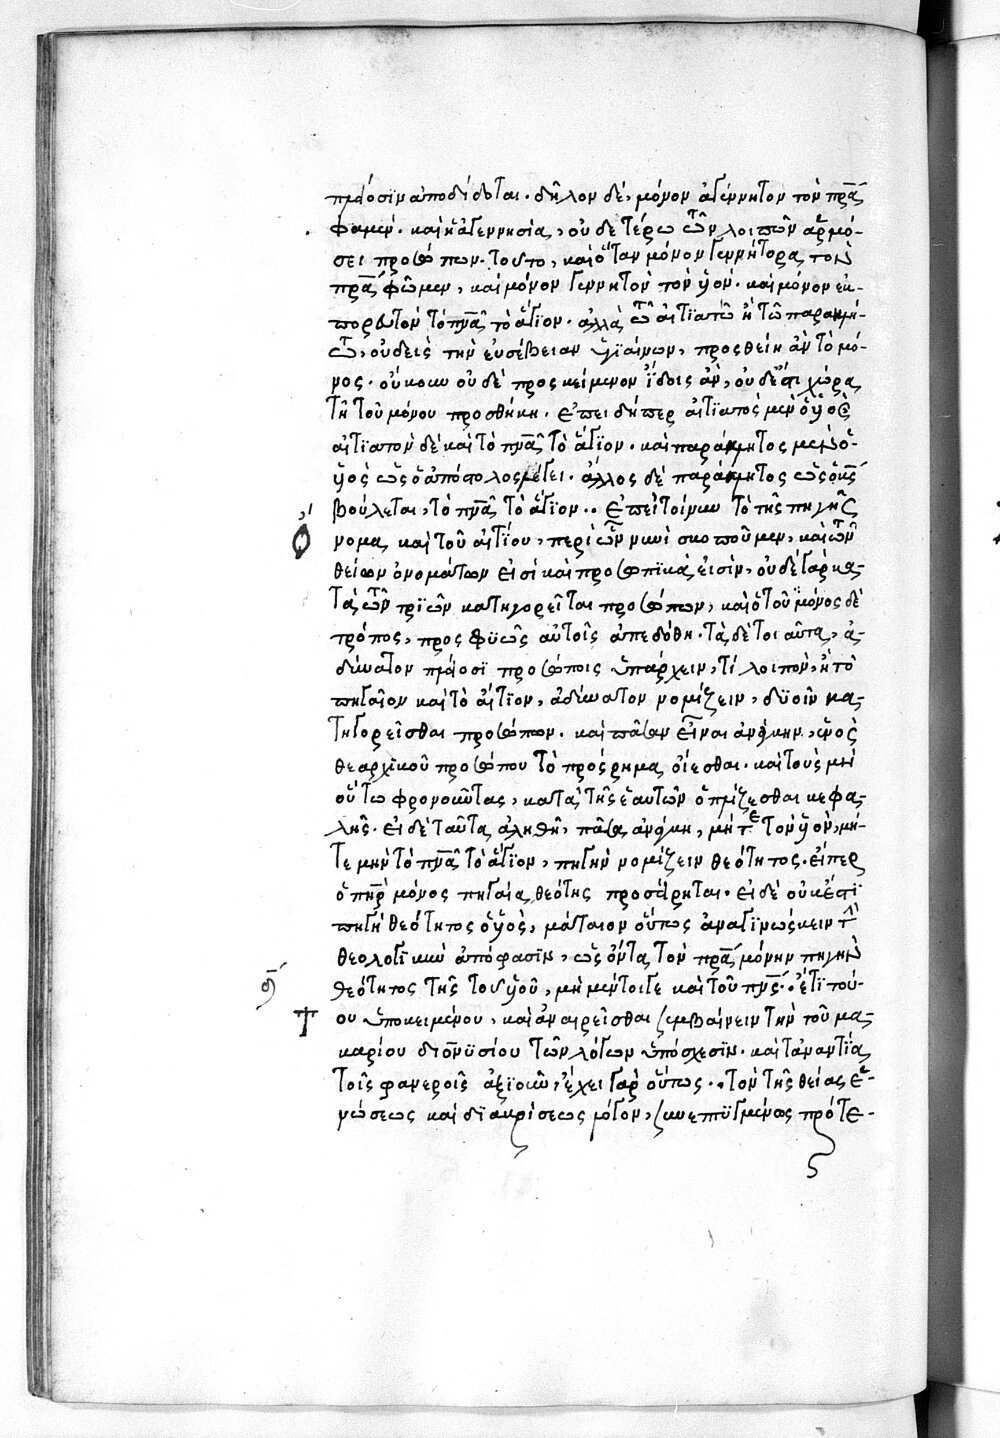 πράοσϊν ἀποδίδοται. δῆλον δέ, μόνον ἀγέννητον τὸν πρα
φαμέν. καὶ ἡ ἀγεννησία, οὐδετέρῳ τῶν λοιπῶν ἁρμό-
σει προσώπων. τοῦτο, καὶ ὅταν μόνον γεννήτορα τὸν
πρα φῶμεν, καὶ μόνον γεννητὸν τὸν ὑόν. καὶ μόνον ἐκ-
πορευτὸν τὸ πνᾶ τὸ ἅγϊον. ἀλλὰ τῶ αἰτϊατῶ ἢ τῶ παρακλή-
τω, οὐδεὶς τὴν εὐσέβειαν ὑγϊαίνων, προσθείη ἂν τὸ μό-
νος. οὔκουν οὐδὲ προσκείμενον ἴδοις ἂν, οὐδέ ἐστι χώρα
τῆ τοῦ μόνου προσθήκη. ἐπειδήπερ αἰτϊατὸς μὲν ὁ ὑός
αἰτϊατὸν δὲ καὶ τὸ πνᾶ τὸ ἅγϊον. καὶ παράκλητος μὲν ὁ
ὑὸς ὡς ὁ ἀπόστολος λέγει. ἄλλος δὲ παράκλητος ὡς ὁ κς
βούλεται, τὸ πνᾶ τὸ ἅγϊον.. Ἐπεὶ τοίνυν τὸ τῆς πηγῆς
ὄνομα καὶ τοῦ αἰτίου, περὶ ὧν νυνὶ σκοποῦμεν, καὶ τῶν
θείων ὀνομάτων εἰσὶ καὶ προσωπϊκά εἰσιν, οὐδὲ γὰρ κα-
τὰ τῶν τρϊῶν κατηγορεῖται προσώπων, καὶ ὁ τοῦ μόνος δὲ
τρόπος, προσφϋῶς αὐτοῖς ἀπεδόθη. τὰ δέ τοι αὐτὰ, ἀ-
δύνατον πράοσϊ προσώποις ὑπάρχειν, τί λοιπὸν, ἢ τὸ
πηγαῖον καὶ τὸ αἴτϊον, ἀδύνατον νομίζειν, δϋοῖν κα-
τηγορεῖσθαι προσώπων. καὶ πᾶσαν εἶναι ἀνάγκην, ἑνὸς
θεαρχϊκοῦ προσώπου τὸ πρόσρημα οἴεσθαι. καὶ τοὺς μὴ
οὕτω φρονοῦντας, κατὰ τῆς ἑαυτῶν ὁπλίζεσθαι κεφα-
λῆς. εἰ δὲ ταῦτα ἀληθῆ, πᾶσα ἀνάγκη, μήτε τὸν ὑὸν, μή-
τε μὴν τὸ πνᾶ τὸ ἅγϊον, πηγὴν νομίζειν θεότητος. εἴπερ
ὁ πηρ μόνος πηγαία θεότης προσείρηται. εἰ δὲ οὐκ ἔστϊ
πηγὴ θεότητος ὁ ὑὸς, μάταιον οὕτως ἀναγϊνώσκειν τὴν
θεολογϊκὴν ἀπόφασϊν, ὡς ὄντα τὸν πρα μόνην πηγὴν
θεότητος τῆς τοῦ ὑοῦ, μὴ μέντοιγε καὶ τοῦ πνς.. ἔτϊ τού-
του ὑποκειμένου, καὶ ἀναιρεῖσθαι συμβαίνειν τὴν τοῦ μα-
καρίου διονϋσίου τῶν λόγων ὑπόσχεσϊν. καὶ τἀναντία
τοῖς φανεροῖς ἀξϊοῦν, ἔχει γὰρ οὕτως.. τὸν τῆς θείας ἑ-
νώσεως καὶ δϊακρίσεως λόγον, συνεπϋγμένως πρότε-